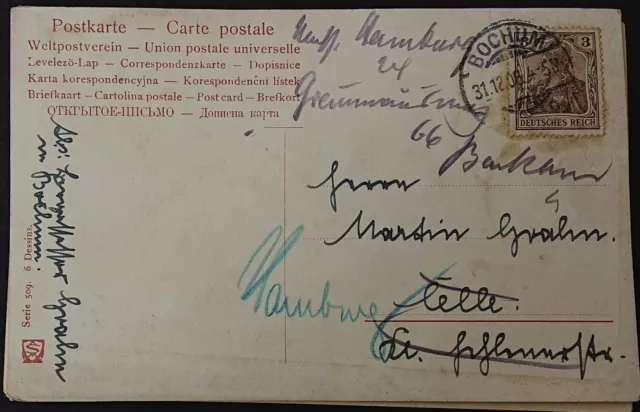 Postkarte — Carte postale
Weltpostverein — Union postale universelle
Levelező-Lap — Correspondenzkarte — Dopisnice
Karta korespondencyjna — Korespondenční lístek
Briefkaart — Cartolina postale — Post card — Brefkort
ОТКРЫТОЕ ПИСЬМО — Дописна карта
Hamburg
24
66
BOCHUM
31.12.05
3
DEUTSCHES REICH
Herrn
Martin Grahn.
Celle.
Hamburg
Kl. Hehlenerstr.
Abs:
in Bochum.
Serie 509. 6 Dessins.